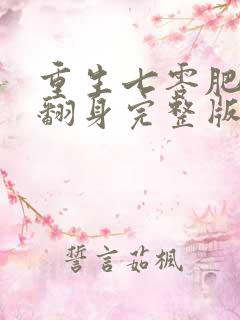 重生七零肥
翻身完整版
誓言茹楓